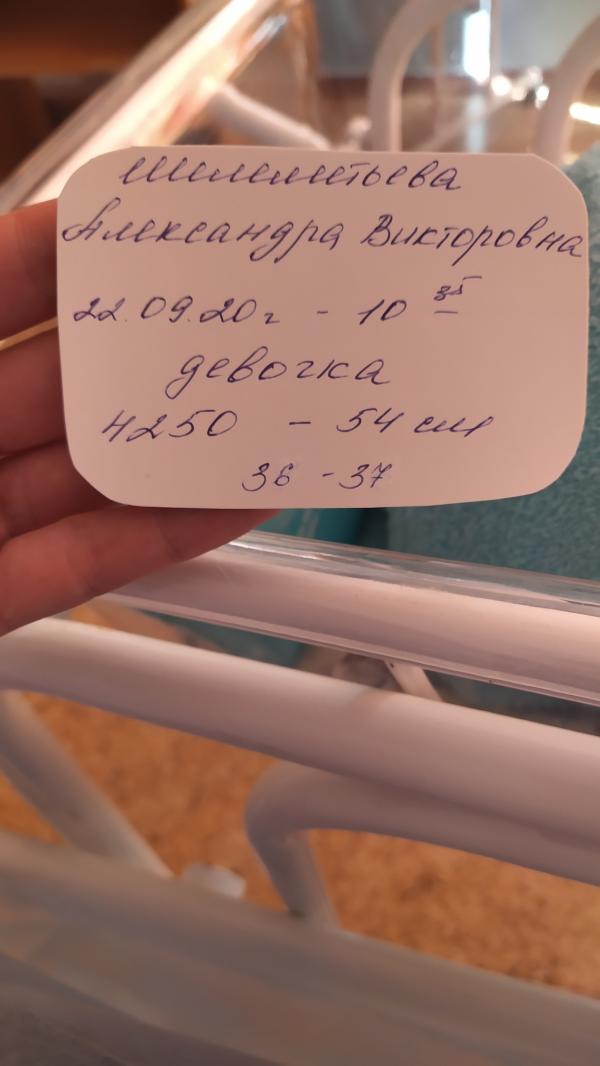 Александра Викторовна
22.09.20г - 10 35
девочка
4250 - 54 см
36 - 37